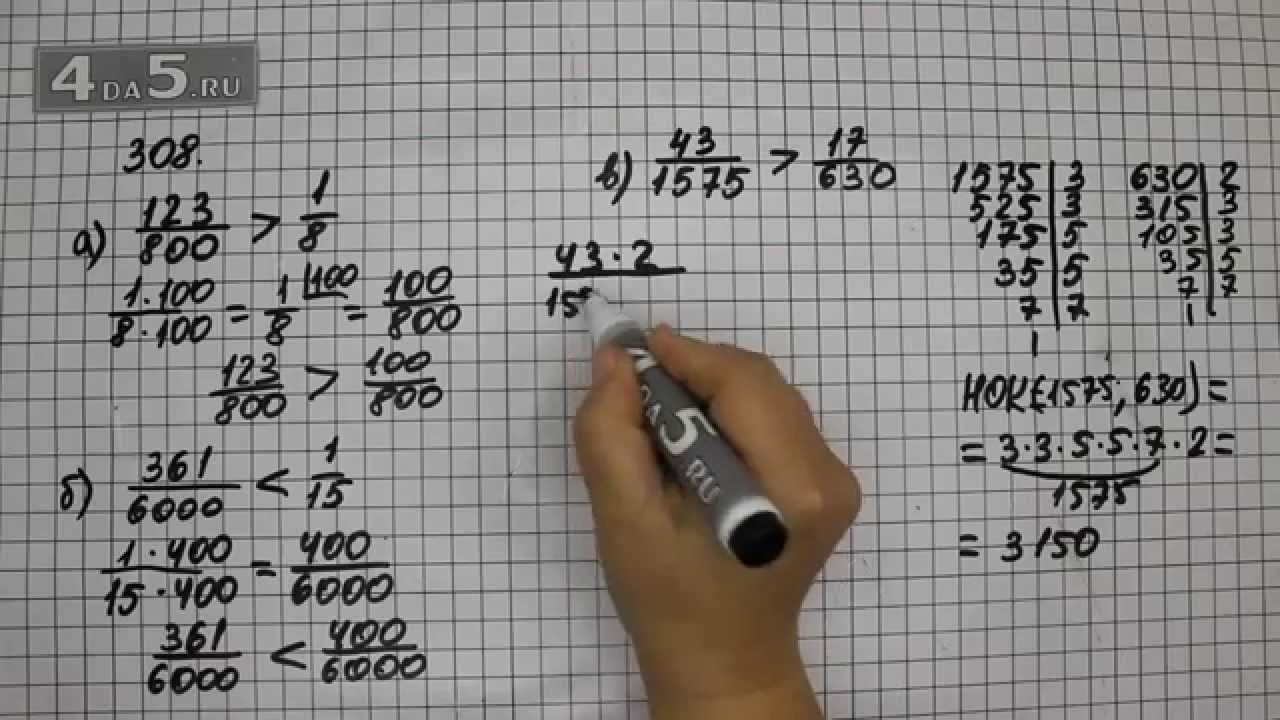 4DA5.RU
308.
а) 123/800 > 1/8
1·100/8·100 = 1/8 |100 = 100/800
123/800 > 100/800
б) 361/6000 < 1/15
1·400/15·400 = 400/6000
361/6000 < 400/6000
в) 43/1575 > 17/630
43·2/15
1575|3
525|3
175|5
35|5
7|7
1
630|2
315|3
105|3
35|5
7|7
1
НОК(1575; 630) =
= 3·3·5·5·7·2 =
1575
= 3150
DA5.RU